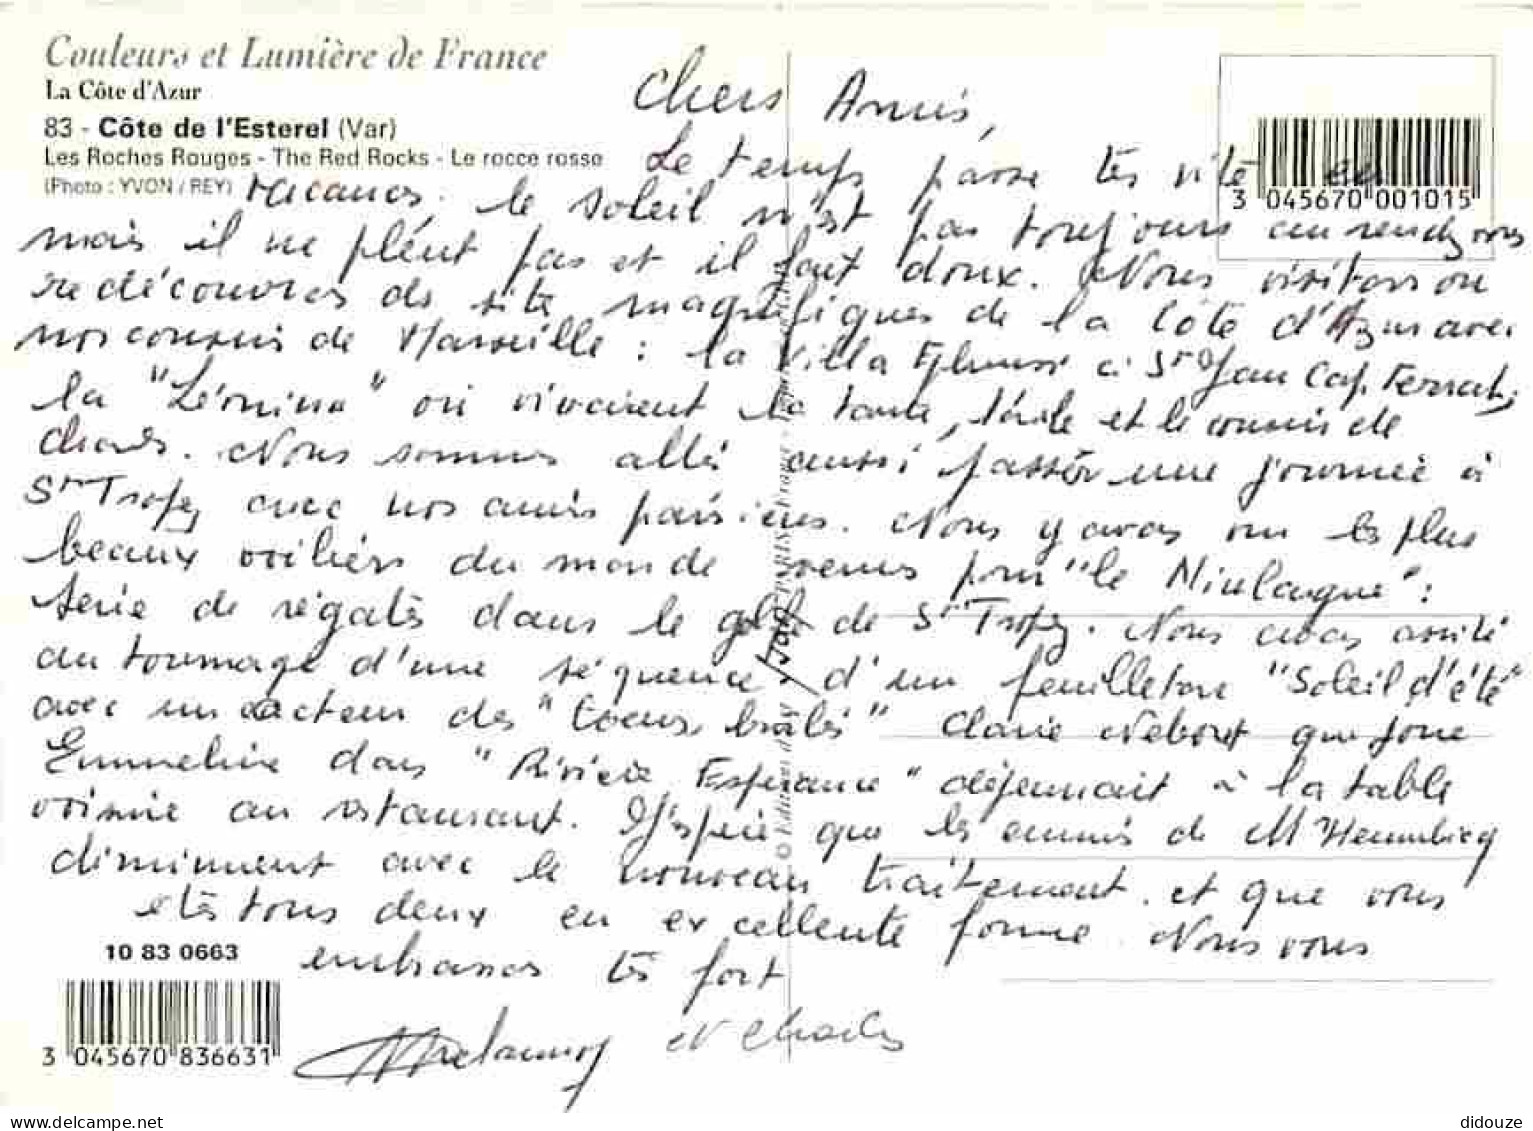 Couleurs et Lumière de France
La Côte d'Azur
83 - Côte de l'Esterel (Var)
Les Roches Rouges - The Red Rocks - Le rocce rosse
(Photo : YVON / REY)
3 045670 001015
Chers Amis,
Le temps passe très vite en
vacances. le soleil n'est pas toujours au rendez vous
mais il ne pleut pas et il fait doux. Nous visitons ou
redécouvrons des site magnifiques de la Côte d'Azur avec
nos cousins de Marseille : la Villa Ephrussi à St Jean Cap Ferrat,
la " " où vivaient la tante, l'oncle et le cousin de
Charles. Nous sommes allés aussi passer une journée à
St Tropez avec nos amis parisiens. Nous y avons vu les plus
beaux voiliers du monde venus pour "la Nioulargue" :
série de régates dans le golfe de St Tropez. Nous avons assisté
au tournage d'une séquence d'un feuilleton "Soleil d'été"
avec un acteur des "Coeurs brulés" Claire Nebout qui joue
Emmeline dans "Rivière Espérance" déjeunait à la table
voisine au restaurant. J'espère que les ennuis de M
diminuent avec le nouveau traitement. et que vous
êtes tous deux en excellente forme. Nous vous
embrassons très fort
et Charles
© Editions d'art YVON
10 83 0663
3 045670 836631
delcampe.net
didouze